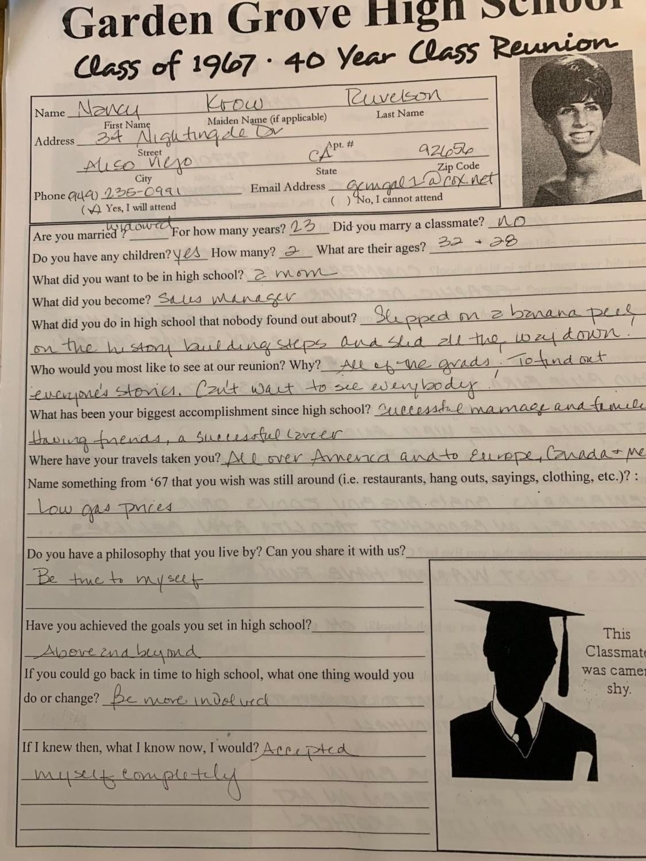 Garden Grove High School
Class of 1967 · 40 Year Class Reunion
Name Nancy Krow Ruvelson
First Name Maiden Name (if applicable) Last Name
Address 34 Nightingale Dr
Street Apt. #
Aliso Viejo CA 92656
City State Zip Code
Phone (949) 235-0991 Email Address gemgal1@cox.net
(✓) Yes, I will attend ( ) No, I cannot attend
Are you married? widowed For how many years? 23 Did you marry a classmate? no
Do you have any children? yes How many? 2 What are their ages? 32 + 28
What did you want to be in high school? a mom
What did you become? Sales Manager
What did you do in high school that nobody found out about? Slipped on a banana peel
on the history building steps and slid all the way down!
Who would you most like to see at our reunion? Why? All of the grads. To find out
everyone's stories. Can't wait to see everybody!
What has been your biggest accomplishment since high school? Successful marriage and family
Having friends, a successful career
Where have your travels taken you? All over America and to Europe, Canada + Me
Name something from '67 that you wish was still around (i.e. restaurants, hang outs, sayings, clothing, etc.)? :
Low gas prices
Do you have a philosophy that you live by? Can you share it with us?
Be true to myself
Have you achieved the goals you set in high school?
Above and beyond
If you could go back in time to high school, what one thing would you
do or change? Be more involved
If I knew then, what I know now, I would? Accepted
myself completely
This
Classmate
was camer
shy.